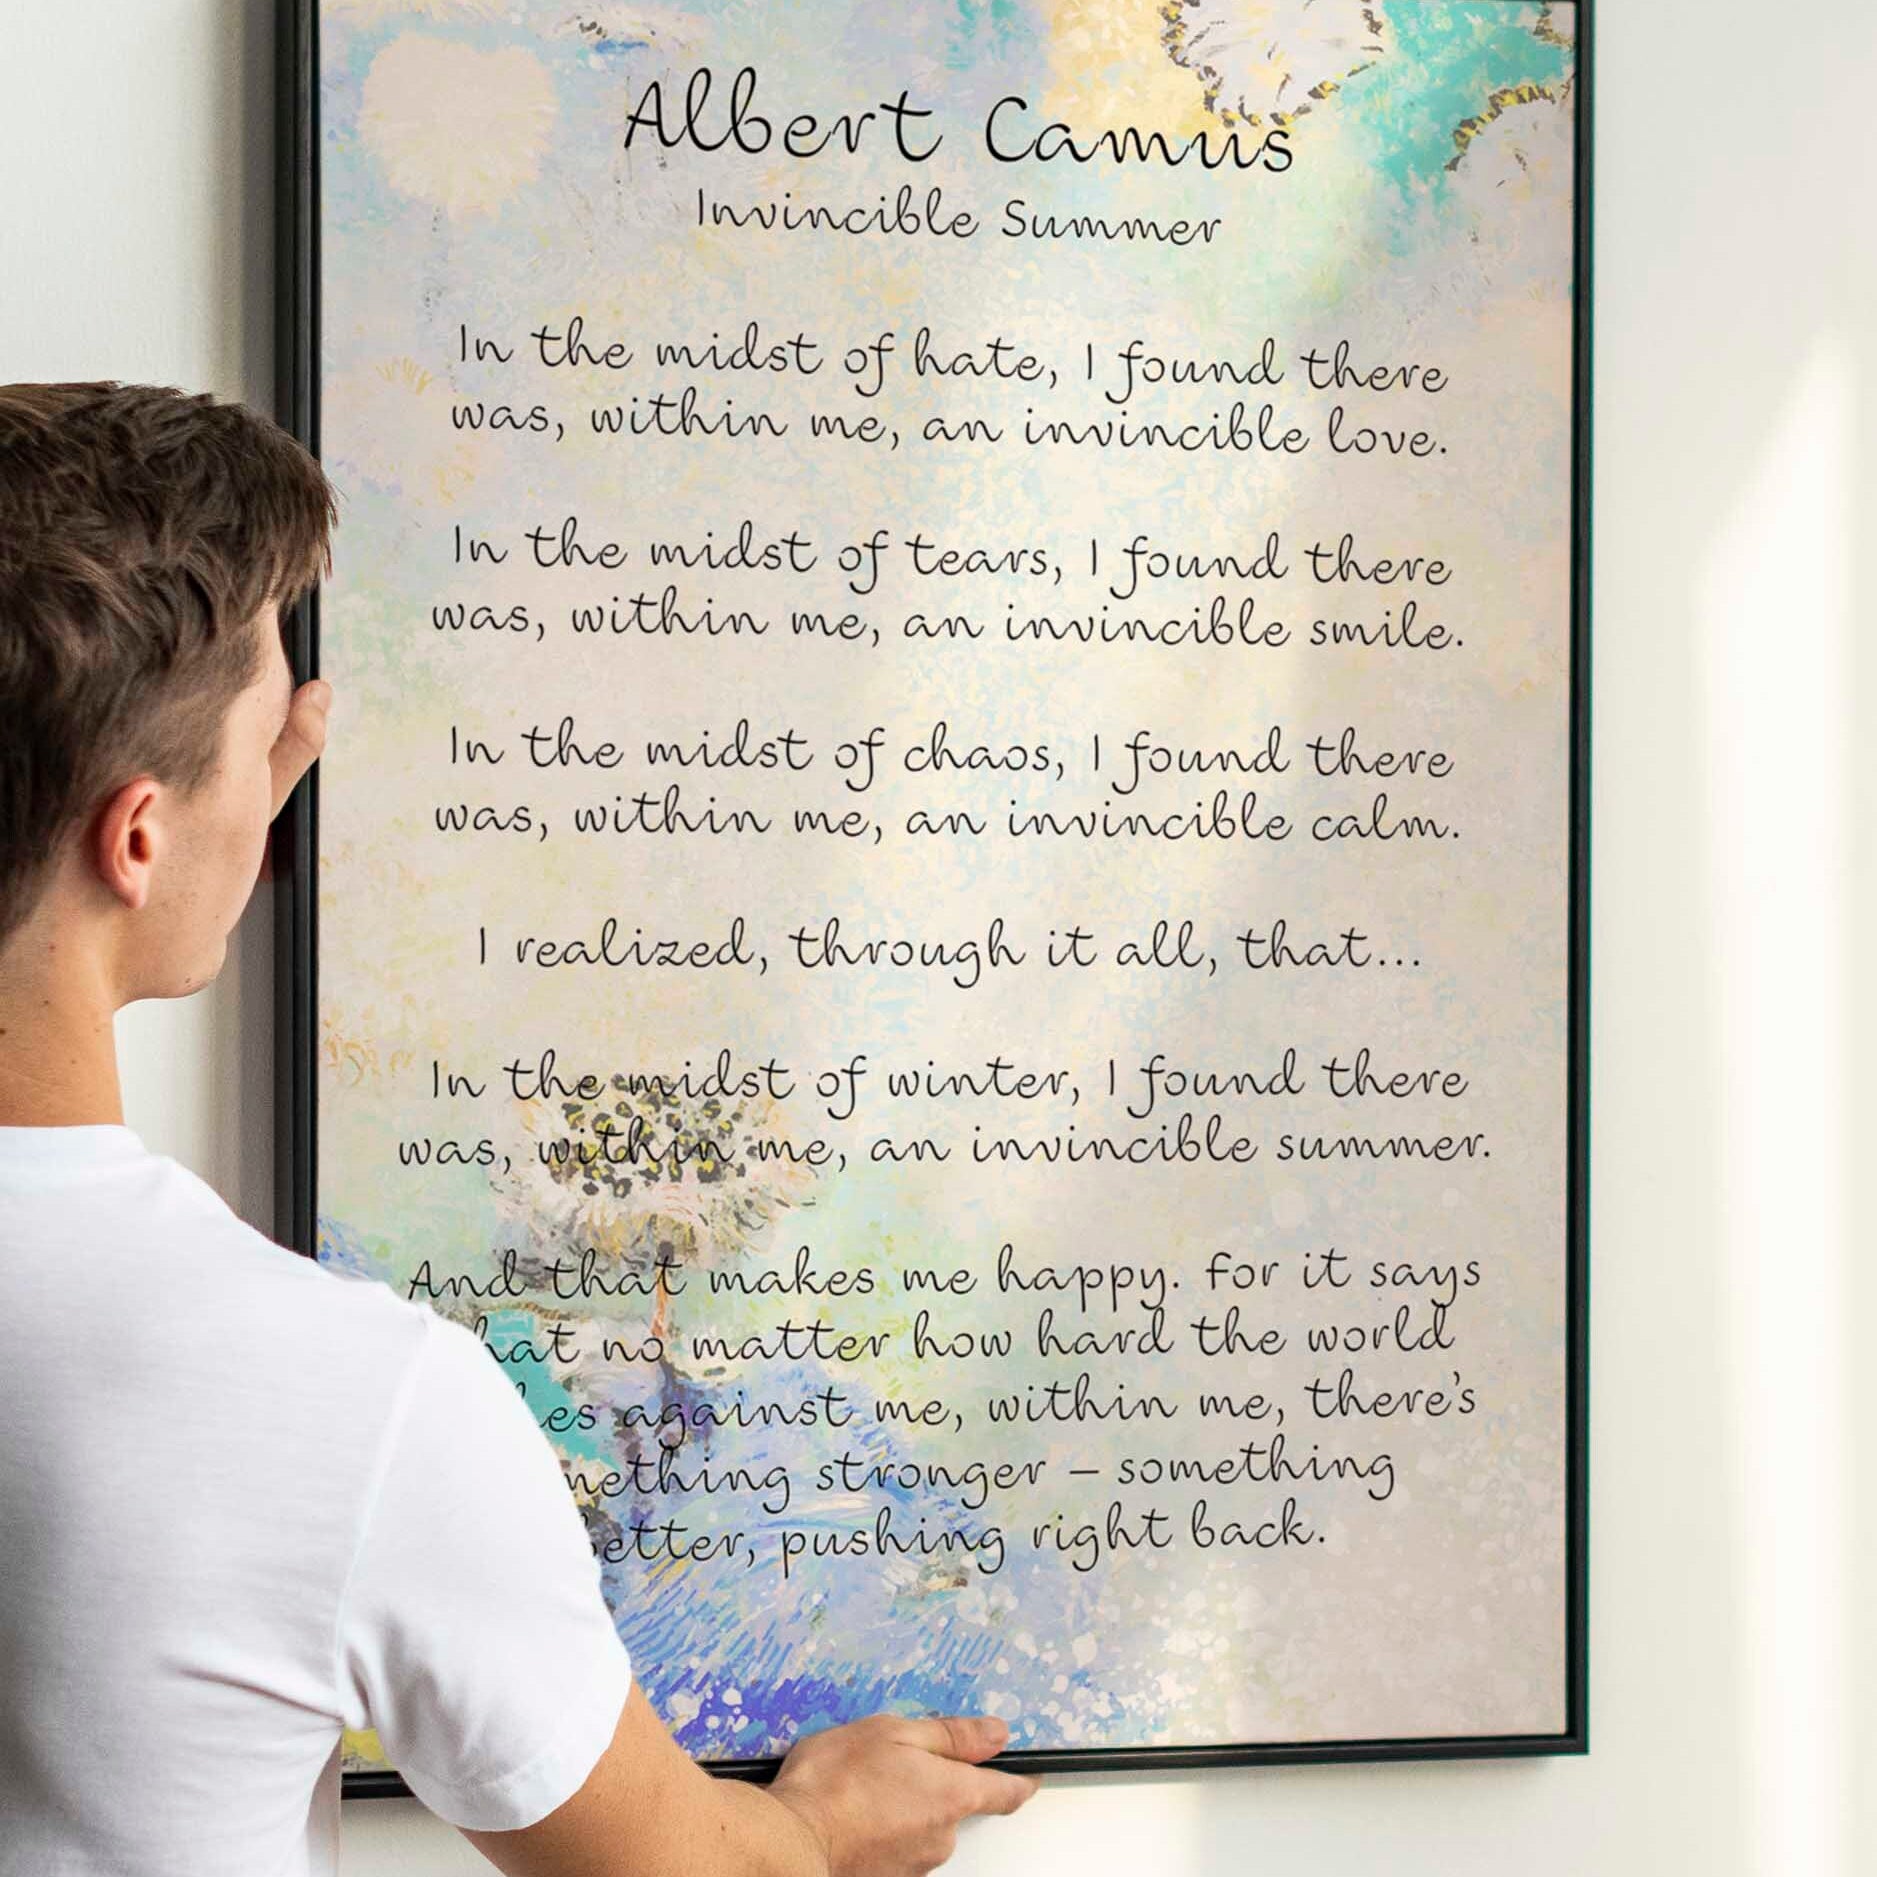 Albert Camus
Invincible Summer
In the midst of hate, I found there
was, within me, an invincible love.
In the midst of tears, I found there
was, within me, an invincible smile.
In the midst of chaos, I found there
was, within me, an invincible calm.
I realized, through it all, that...
In the midst of winter, I found there
was, within me, an invincible summer.
And that makes me happy. For it says
that no matter how hard the world
against me, within me, there's
something stronger – something
better, pushing right back.